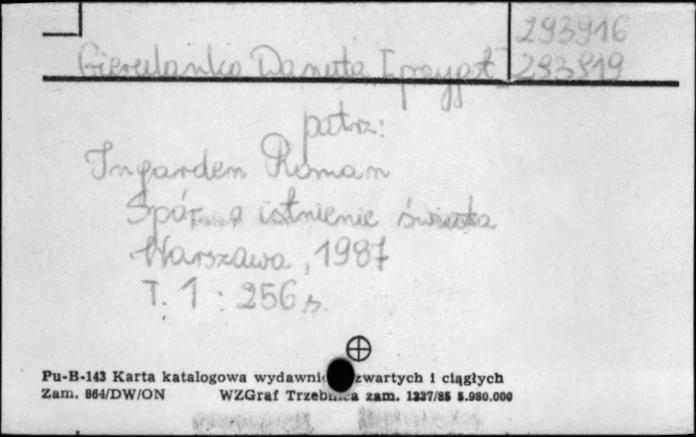 293916
Gierulanka Danuta [przygot.] 293919
patrz:
Ingarden Roman
Spór o istnienie świata
Warszawa, 1987
T. 1 : 256 s.
Pu-B-143 Karta katalogowa wydawni zwartych i ciągłych
Zam. 864/DW/ON WZGraf Trzebnica zam. 1337/85 5.980.000